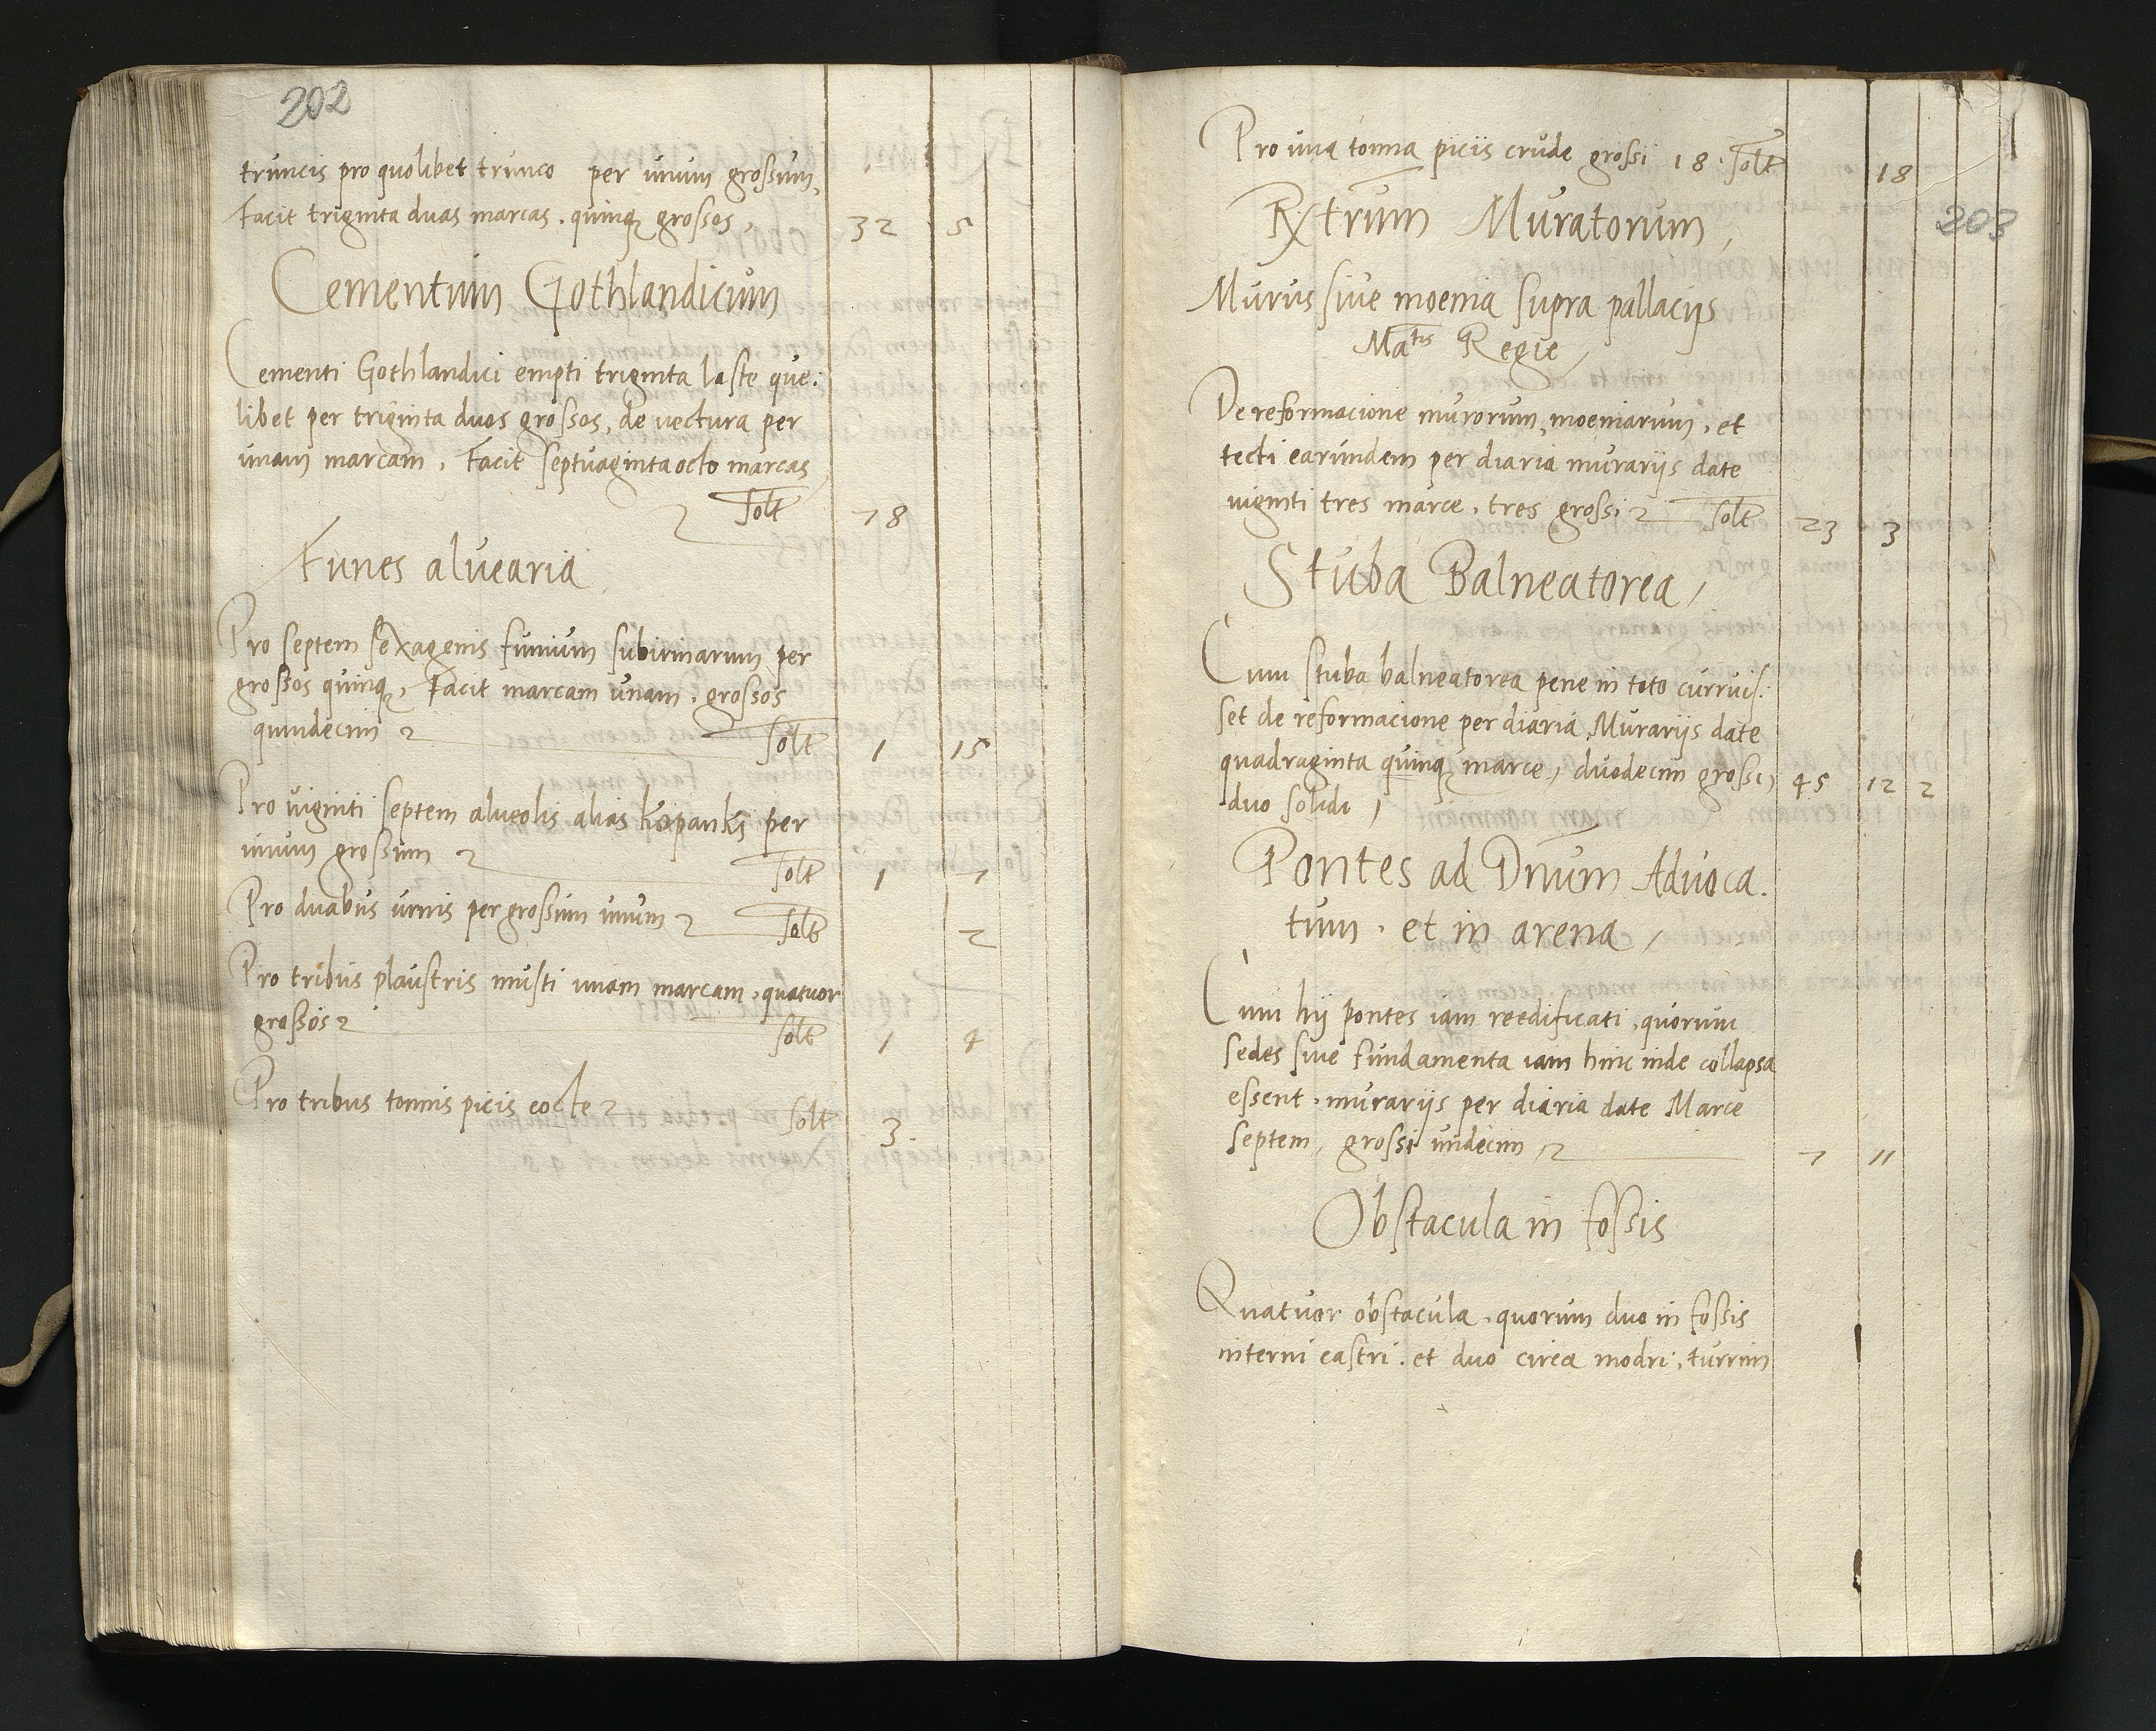 202
truncis pro quolibet trunco per unum grossum,
Facit triginta duas marcas. quinq grossos, 32 5
Cementum Gothlandicum
Cementi Gothlandici empti triginta laste que:
libet per triginta duos grossos, de vectura per
unam marcam, Facit septuaginta octo marcas
solt 78
Funes alvearia
Pro septem sexagenis funium subirinarum per
grossos quinq, Facit marcam unam, grossos
quindecim solt 1 15
Pro viginti septem alveolis alias kopankj per
unum grossum solt 1 7
Pro duabus urnis per grossum unum solt 2
Pro tribus plaustris musti unam marcam, quatuor
grossos solt 1 4
Pro tribus tonnis picis cocte solt 3.
Pro una tonna picis crude grossi 18. solt 18
203
Rxtrum Muratorum,
Murus sive moenia supra pallacijs
Matis Regie
De reformacione murorum, moeniarum, et
tecti earundem per diaria murarijs date
viginti tres marce, tres grossi solt 23 3
Stuba Balneatorea,
Cum stuba balneatorea pene in toto corruis:
set de reformacione per diaria Murarijs date
quadraginta quinq marce, duodecim grossi, 45 12 2
duo solidi,
Pontes ad Dnum Advoca.
tum. et in arena,
Cum hij pontes iam reedificati, quorum
sedes sive fundamenta iam hinc inde collapsa
essent, murarijs per diaria date Marce
septem, grossi undecim 7 11
Obstacula in fossis
Quatuor obstacula, quorum duo in fossis
interni castri. et duo circa modri, turrim